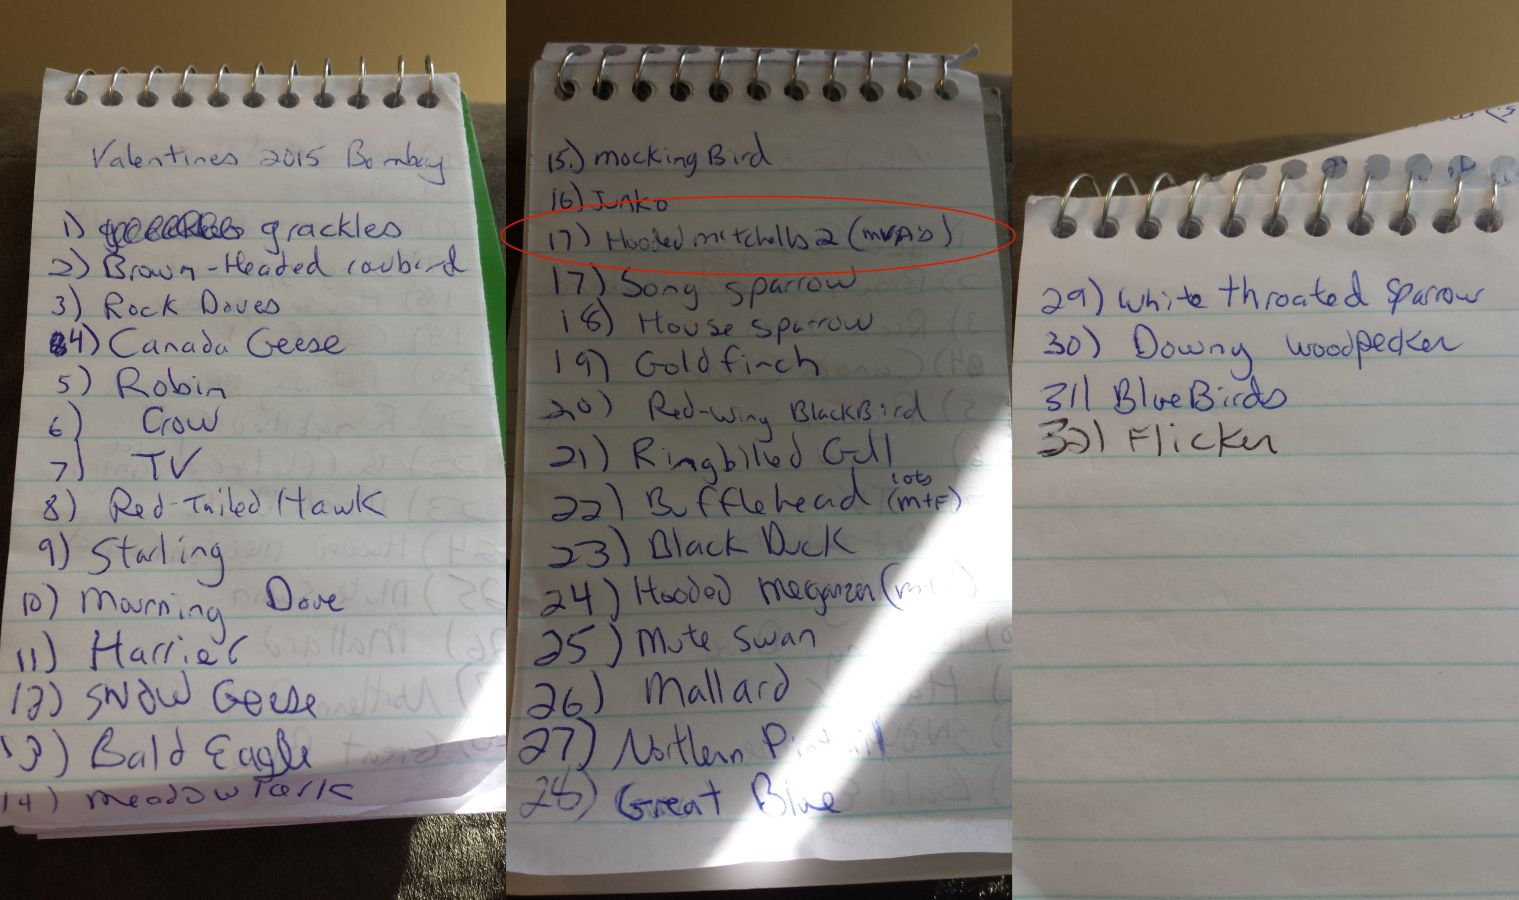 Valentines 2015 Bombay
1) grackles
2) Brown-Headed cowbird
3) Rock Doves
4) Canada Geese
5) Robin
6) Crow
7) TV
8) Red-Tailed Hawk
9) Starling
10) Mourning Dove
11) Harrier
12) SNOW Geese
13) Bald Eagle
14) meadowlark
15.) mocking Bird
16) Junko
17) Hooded mitchells 2
17) Song sparrow
18) House sparrow
19) Goldfinch
20) Red-wing BlackBird
21) Ringbilled Gull
22) Bufflehead lots (m+F)
23) Black Duck
24) Hooded
25) Mute Swan
26) Mallard
27) Northern Pintail
28) Great Blue
29) White throated Sparrow
30) Downy woodpecker
31) BlueBirds
32) Flicker